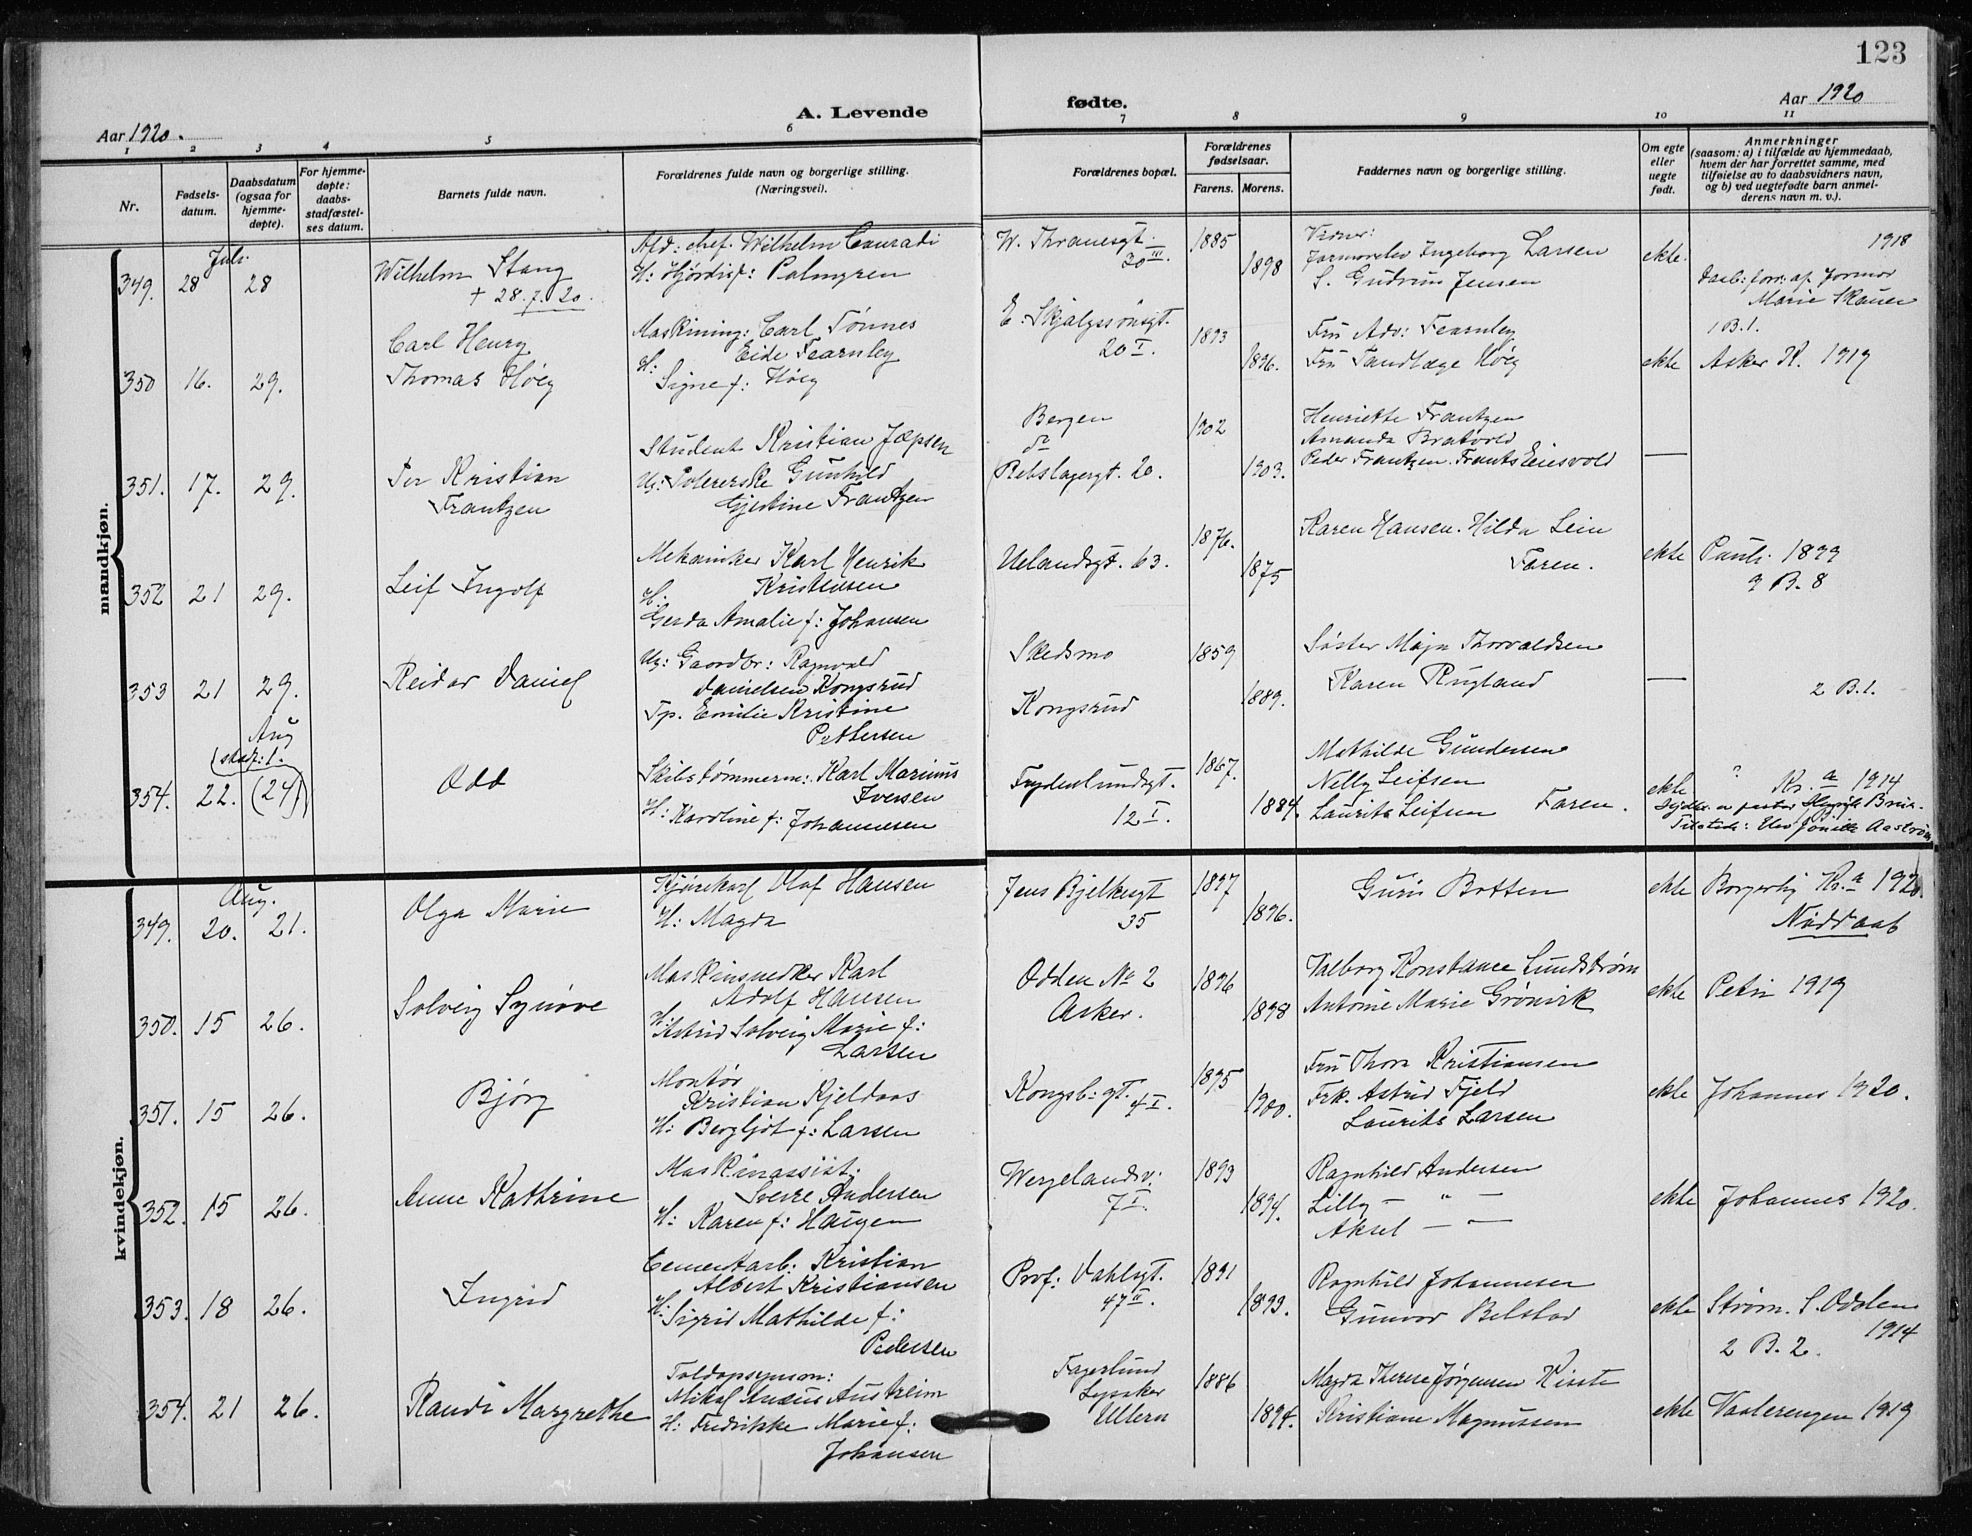 123
A. Levende
fødte.
Aar 1920.
Aar 1920
1 2 3 4 5 6 7 8 9 10 11
Nr.
Fødsels-
datum.
Daabsdatum
(ogsaa for
hjemme-
døpte).
For hjemme-
døpte:
daabs-
stadfæstel-
ses datum.
Barnets fulde navn.
Forældrenes fulde navn og borgerlige stilling.
(Næringsvei).
Forældrenes bopæl.
Forældrenes
fødselsaar.
Farens. Morens.
Faddernes navn og borgerlige stilling.
Om egte
eller
uegte
født.
Anmerkninger
(saasom: a) i tilfælde av hjemmedaab,
hvem der har forrettet samme, med
tilføielse av to daabsvidners navn,
og b) ved uegtefødte barn anmel-
derens navn m. v.).
mandkjøn.
Juli
349. 28 28
Wilhelm Stang
+ 28.7.20.
Afd: chef. Wilhelm Conradi
H: Hjørdis f: Palmgren
W. Thranesgt.
30 III.
1885
1898
Vidner:
Jormorelev Ingeborg Larsen
S. Gudrun Jensen
ekte.
1918
Daab: forr: af Jormor
Marie Skauer
350 16. 29.
Carl Henry
Thomas Høeg
Maskining: Carl Tønnes
Eide Fearnley
H:
Signe f: Høeg
E. Skjalgssønsgt.
20 I.
1893
1896.
Fru Adv: Fearnley
Fru Tandlæge Høeg
ekte
1 B.1.
Asker K. 1919
351. 17. 29.
Per Kristian
Frantzen
Student Kristian Jæpsen
Ug: Polererske Gunhild
Gjertine Frantzen
Bergen
do
Rebslagergt. 20.
1902
1903.
Henriette Frantzen
Amanda Bratvold
Peder Frantzen. Frants Eiesvold
—
352 21 29.
Leif Ingolf
Mekaniker Karl Henrik
Kristensen
H:
Gerda Amalie f: Johansen
Uelandsgt. 63.
1876.
1875
Karen Hansen. Hilda Lein
Faren.
ekte
Pauli. 1899
9 B. 8
353 21 29.
Reidar Daniel
Ug: Gaardbr: Ragnvald
Danielsen Kongsrud
Tp. Emilie Kristine
Pettersen
Skedsmo
Kongsrud
1859
1889.
Søster Maja Thorvaldsen
Karen Rugland
—
2 B.1.
Aug
(stadf: 1.
354. 22. (24/7)
Odd
Skibstømmerm: Karl Marius
Iversen
H: Karoline f: Johannesen
Frydenlundsgt.
12 I.
1867.
1884.
Mathilde Gundersen
Nelly Leifsen
Laurits Leifsen Faren.
ekte
? Kr.a 1914
kvindekjøn.
Aug.
349. 20. 21.
Olga Marie
Kjørekarl Olaf Hansen
H: Magda
Jens Bjelkesgt
35
1897
1896.
Guri Botten
ekte
Borgerlig Kr.a 1920.
Nøddaab
350. 15 26.
Solveig Synøve
Maskinsnedker Karl
Adolf Hansen
H: Astrid Solveig Marie f:
Larsen
Odden No 2
Asker.
1896
1898
Valborg Konstance Lundstrøm
Antonie Marie Grønvik
ekte
Petri 1919
351. 15 26.
Bjørg
Montør
Kristian Kjeldaas
H: Bergljot f: Larsen
Kongsb: gt. 4 I.
1895
1900.
Fru Thora Kristiansen
Frk. Astrid Fjeld
Laurits Larsen
ekte
Johannes 1920.
352. 15 26.
Anne Kathrine
Maskinassist.
Sverre Andersen
H: Karen f: Haugen
Wergelandsv:
7 I.
1893
1894.
Ragnhild Andersen
Lilly — " —
Aksel — " —
ekte
Johannes 1920.
353. 18 26.
Ingrid
Cementarb: Kristian
Albert Kristiansen
H: Sigrid Mathilde f:
Pedersen
Prof: Dahlsgt.
47 II.
1891
1893.
Ragnhild Johannesen
Gunvor Belstad
ekte
Strøm. S. Odalen
1914
2 B. 2.
354. 21 26.
Randi Margrethe
Toldopsynsm:
Mikal Austreim
H: Fredrikke Marie f:
Johansen
Fagerlund
Lysaker
Ullern
1886
1894.
Magda Therese Jørgensen
Kristiane Magnussen
ekte
Vaalerengen 1919